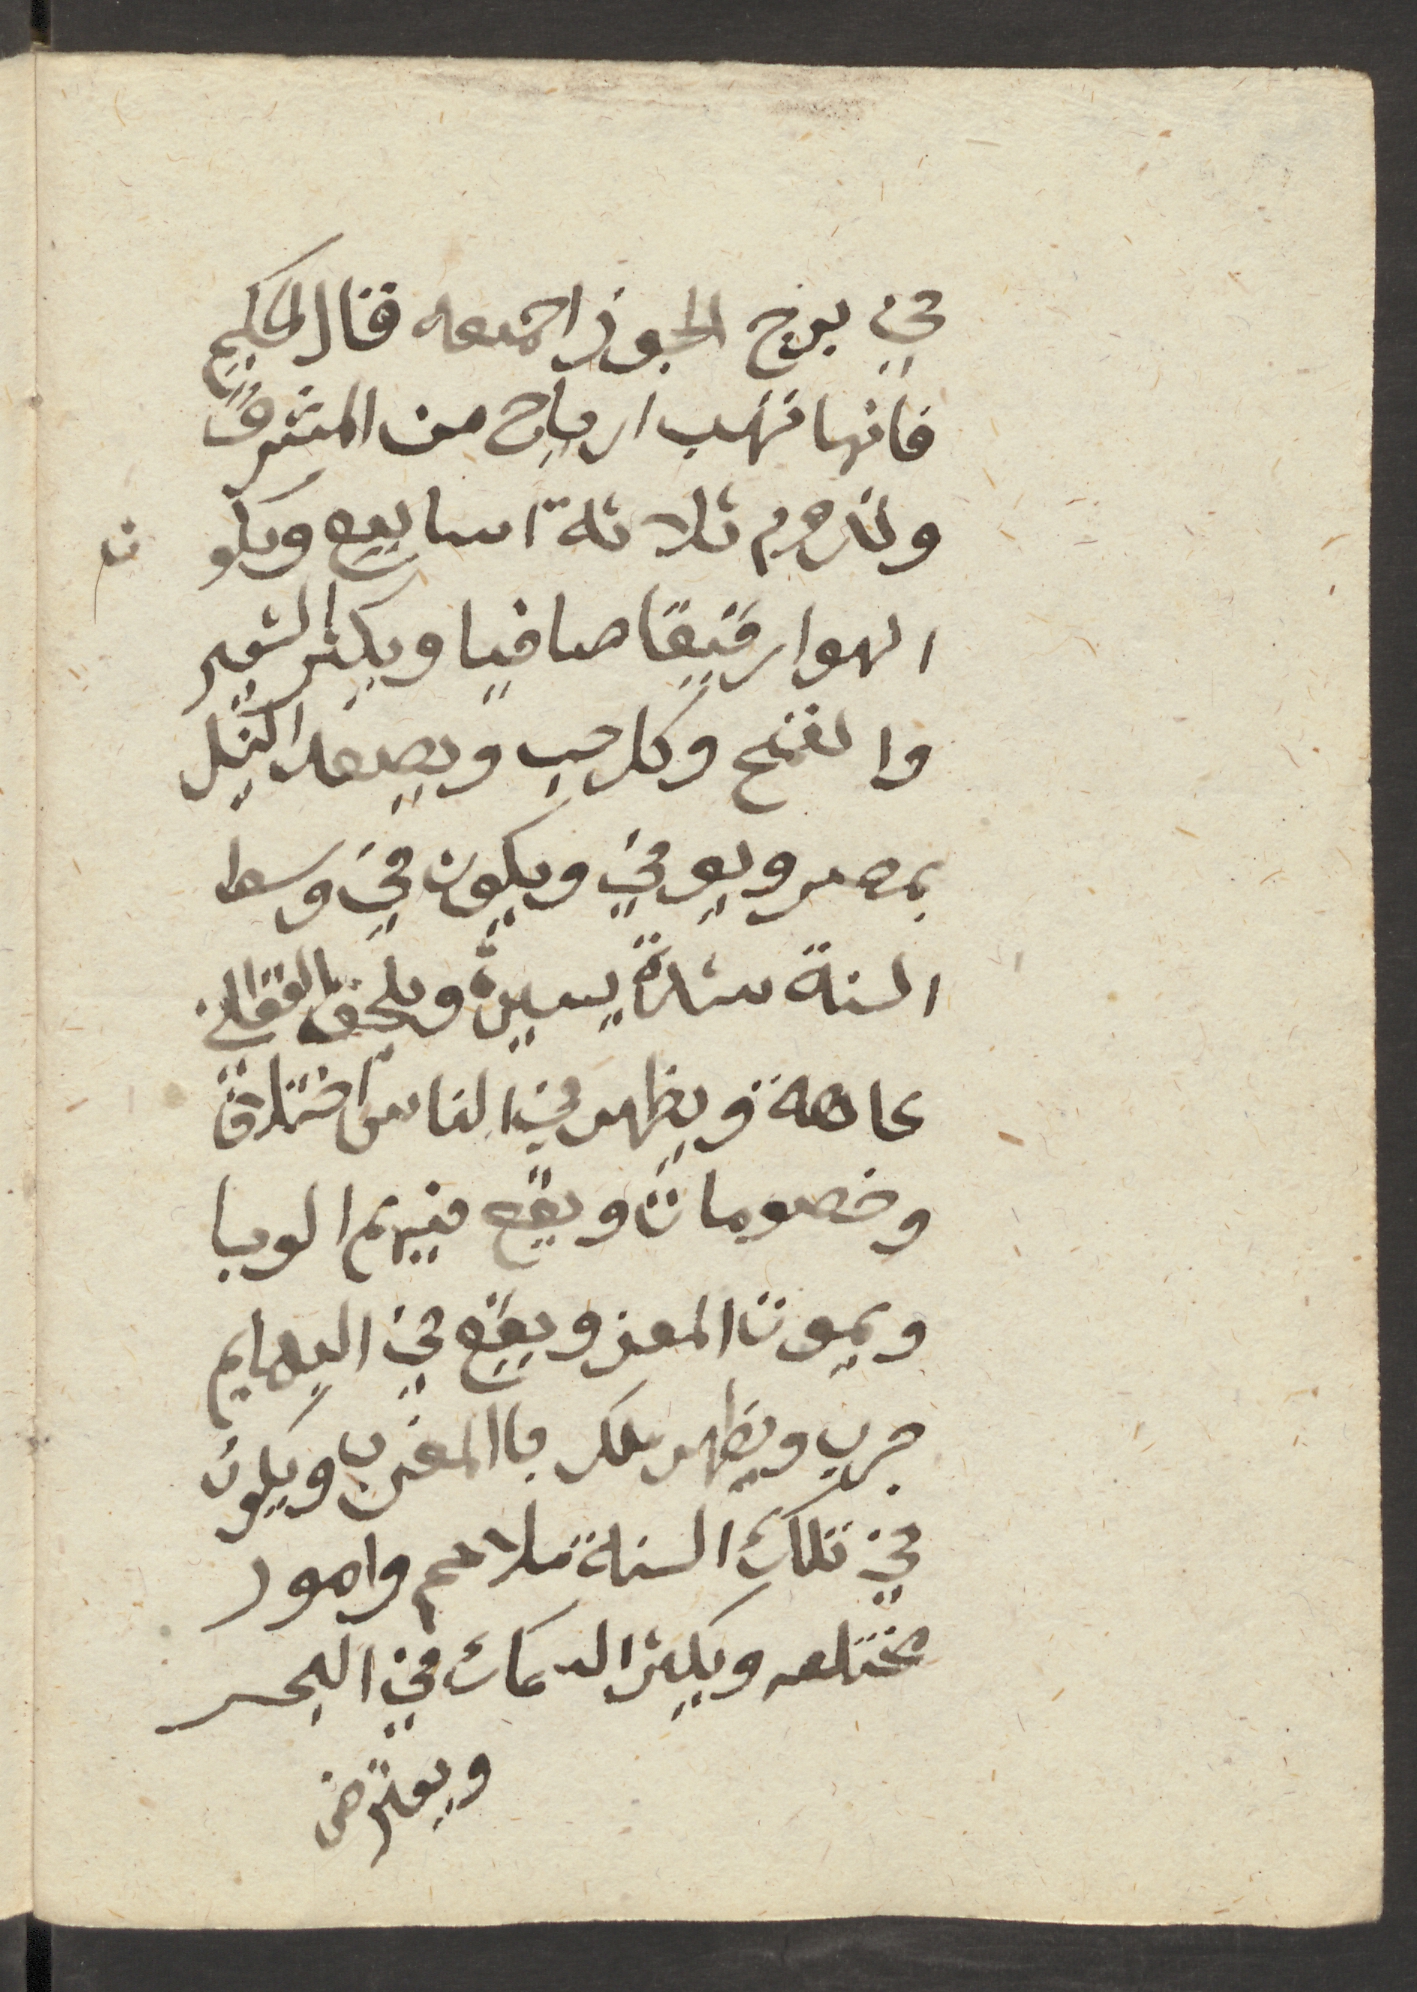 في برج الجوزا جمعه فقال الحكيم
فانها تهب ارياح من المشرق
وتدوم ثلاثة اسابيع ويكون
الهوا رقيقا صافيا ويكثر الشعير
والقمح وكل حب ويصعد النيل
بمصر ويوفي ويكون في وسط
السنة شدة يسيرة ويلحق
عاهة ويظهر في الناس اختلاف
وخصومات ويقع فيهم الوبا
ويموت المعز ويقع في البهايم
جرب ويظهر ملك باالمغرب ويكون
في تلك السنة ملاحم وامور
مختلفه ويكثر السمك في البحر
ويعترض